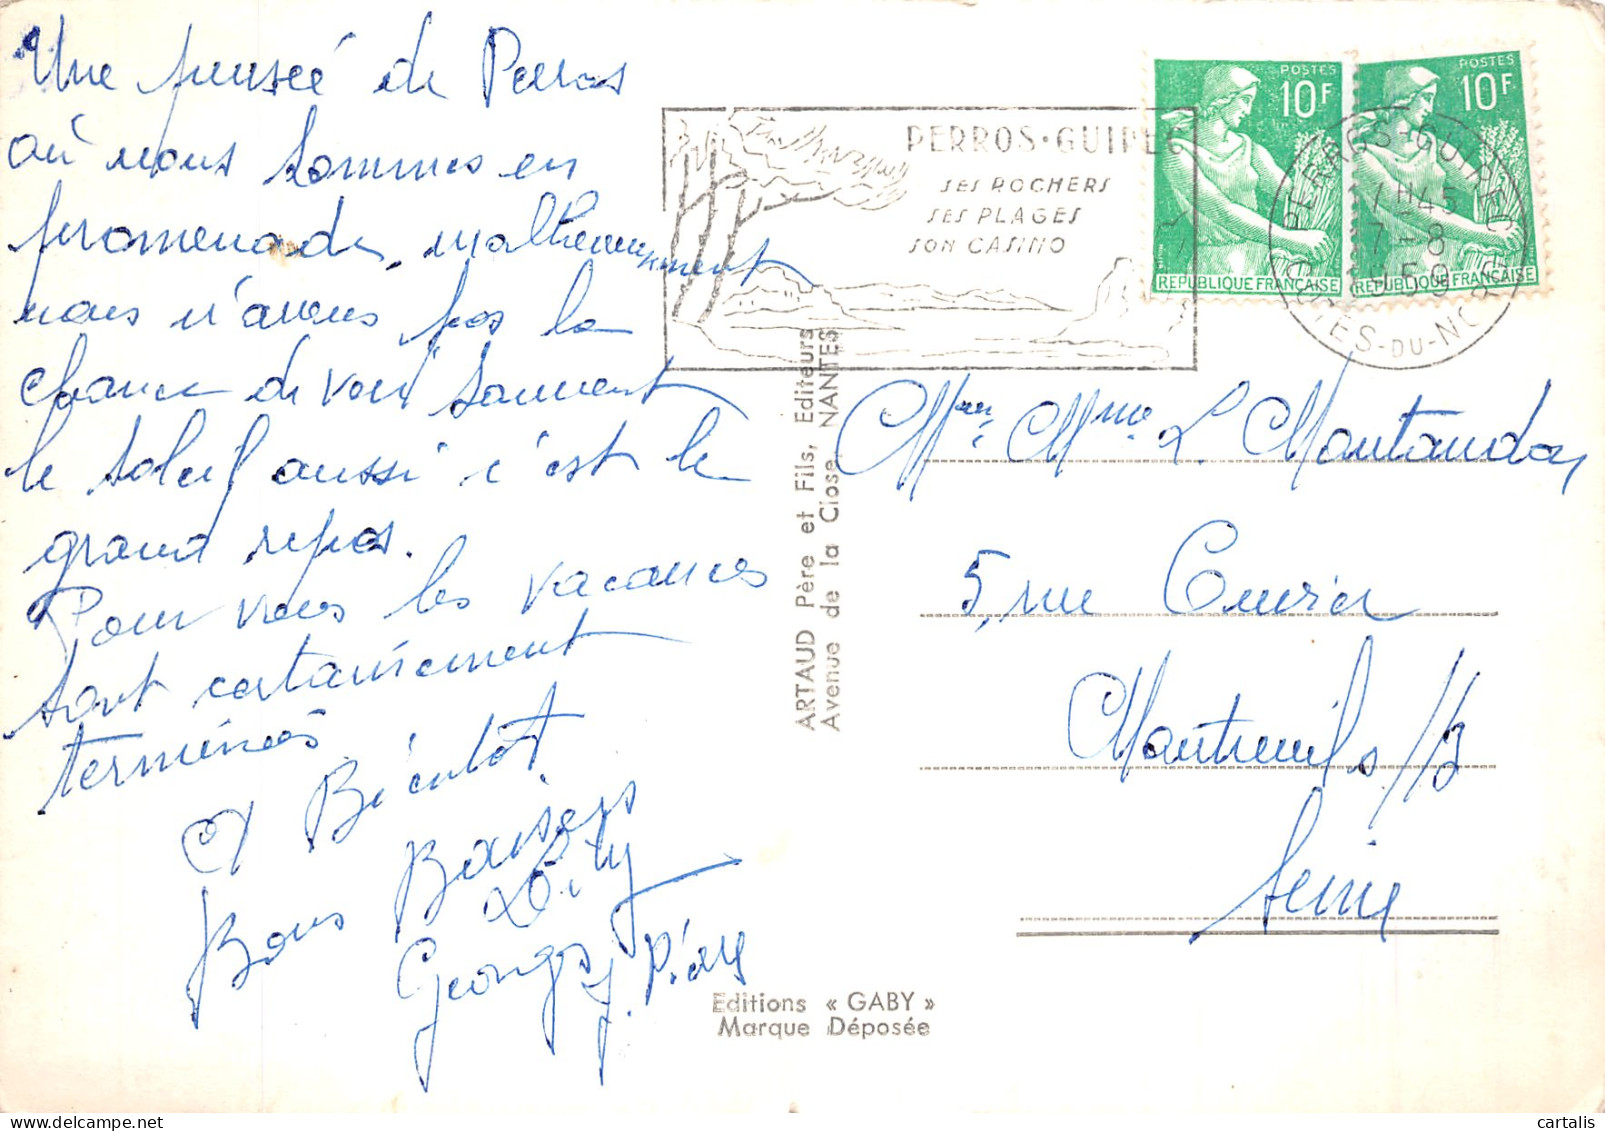 Une pensée de Perros
où nous sommes en
promenade, malheureusement
nous n'avons pas la
chance de voir souvent
le soleil aussi c'est le
grand repos.
Pour vous les vacances
sont certainement
terminées
A Bientôt
Bons Baisers
Georges J. Pierre
PERROS-GUIREC
SES ROCHERS
SES PLAGES
SON CASINO
POSTES
10F
REPUBLIQUE FRANÇAISE
POSTES
10F
REPUBLIQUE FRANÇAISE
PERROS-GUIREC
7H45
7-8
1959
COTES-DU-NORD
ARTAUD Père et Fils, Editeurs
Avenue de la Close, NANTES
Mr. Mme L. Montandon
5, rue Cuvier
Montreuil s/B
Seine
Editions « GABY »
Marque Déposée
cartalis